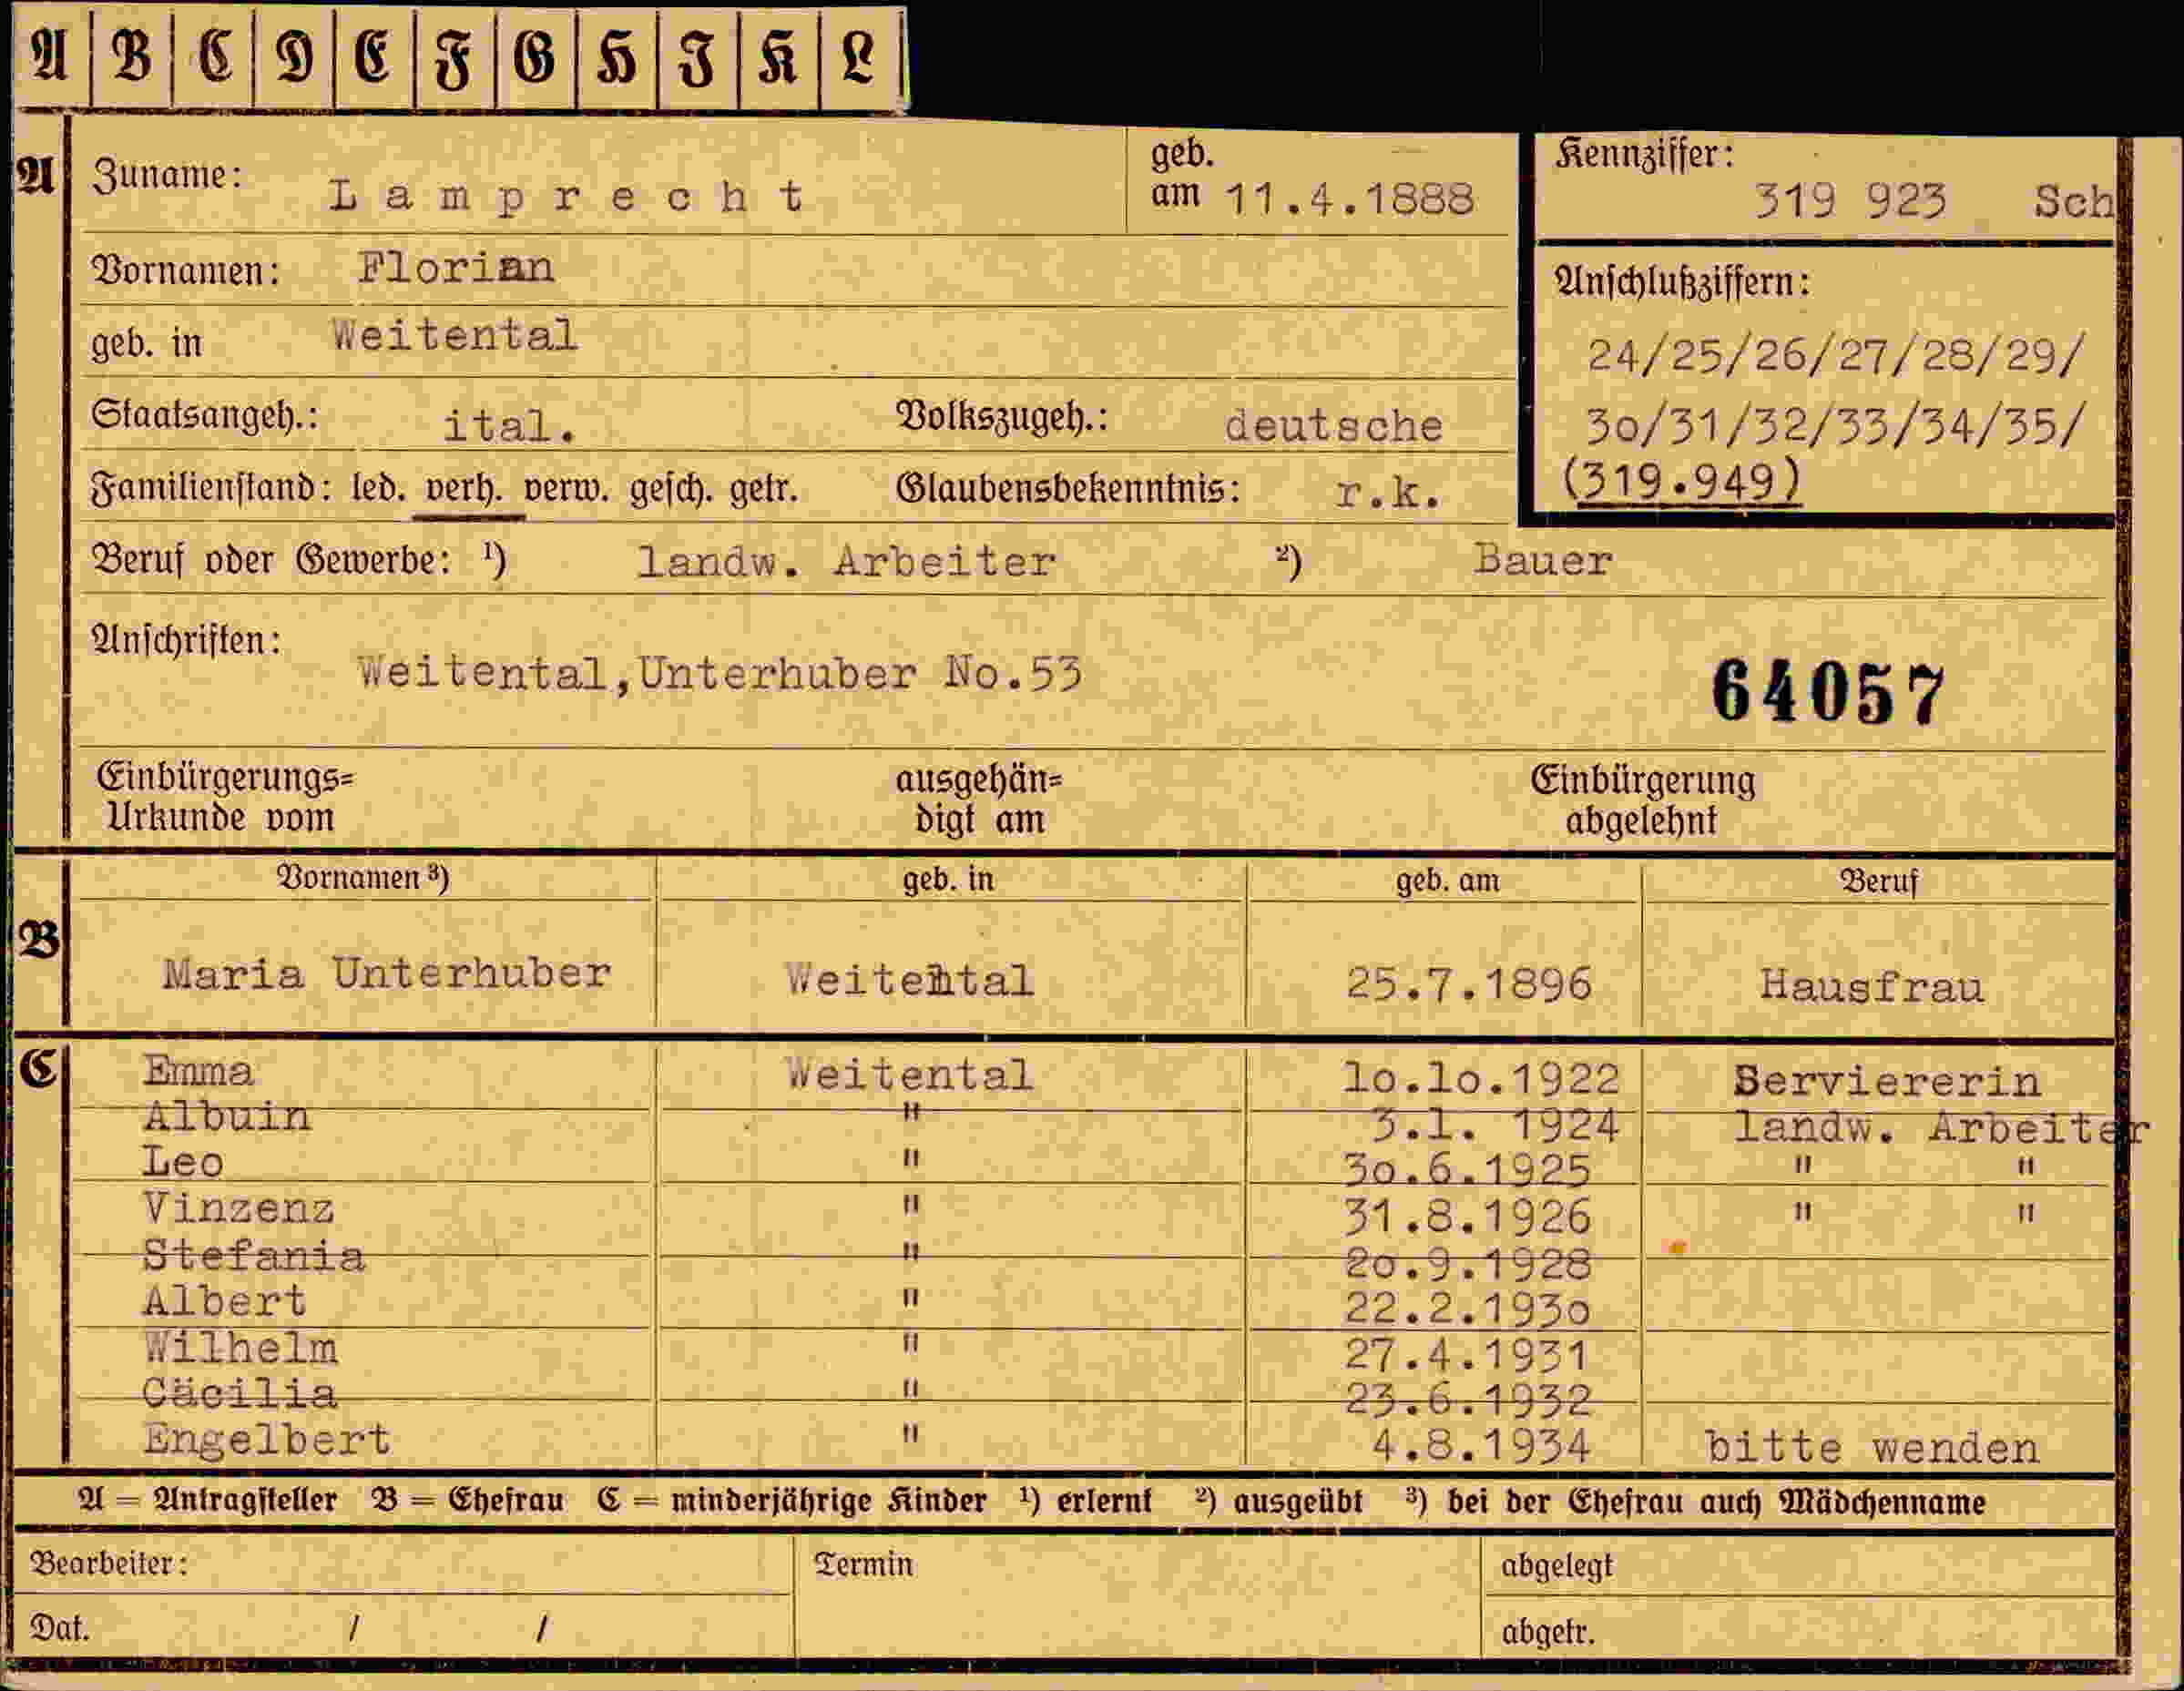 A B C D E F G H I K L
A Zuname: Lamprecht geb. am 11.4.1888 Kennziffer: 319 923 Sch
Vornamen: Florian Anschlußziffern:
geb. in Weitental 24/25/26/27/28/29/
Staatsangeh.: ital. Volkszugeh.: deutsche 30/31/32/33/34/35/
Familienstand: led. verh. verw. gesch. getr. Glaubensbekenntnis: r.k. (319.949)
Beruf oder Gewerbe: ¹) landw. Arbeiter ²) Bauer
Anschriften:
Weitental,Unterhuber No.53 64057
Einbürgerungs= ausgehän= Einbürgerung
Urkunde vom digt am abgelehnt
Vornamen ³) geb. in geb. am Beruf
B Maria Unterhuber Weitental 25.7.1896 Hausfrau
C Emma Weitental 10.10.1922 Serviererin
Albuin " 3.1. 1924 landw. Arbeiter
Leo " 30.6.1925 " "
Vinzenz " 31.8.1926 " "
Stefania " 20.9.1928
Albert " 22.2.1930
Wilhelm " 27.4.1931
Cäcilia " 23.6.1932
Engelbert " 4.8.1934 bitte wenden
A = Antragsteller B = Ehefrau C = minderjährige Kinder ¹) erlernt ²) ausgeübt ³) bei der Ehefrau auch Mädchenname
Bearbeiter: Termin abgelegt
Dat. / / abgetr.